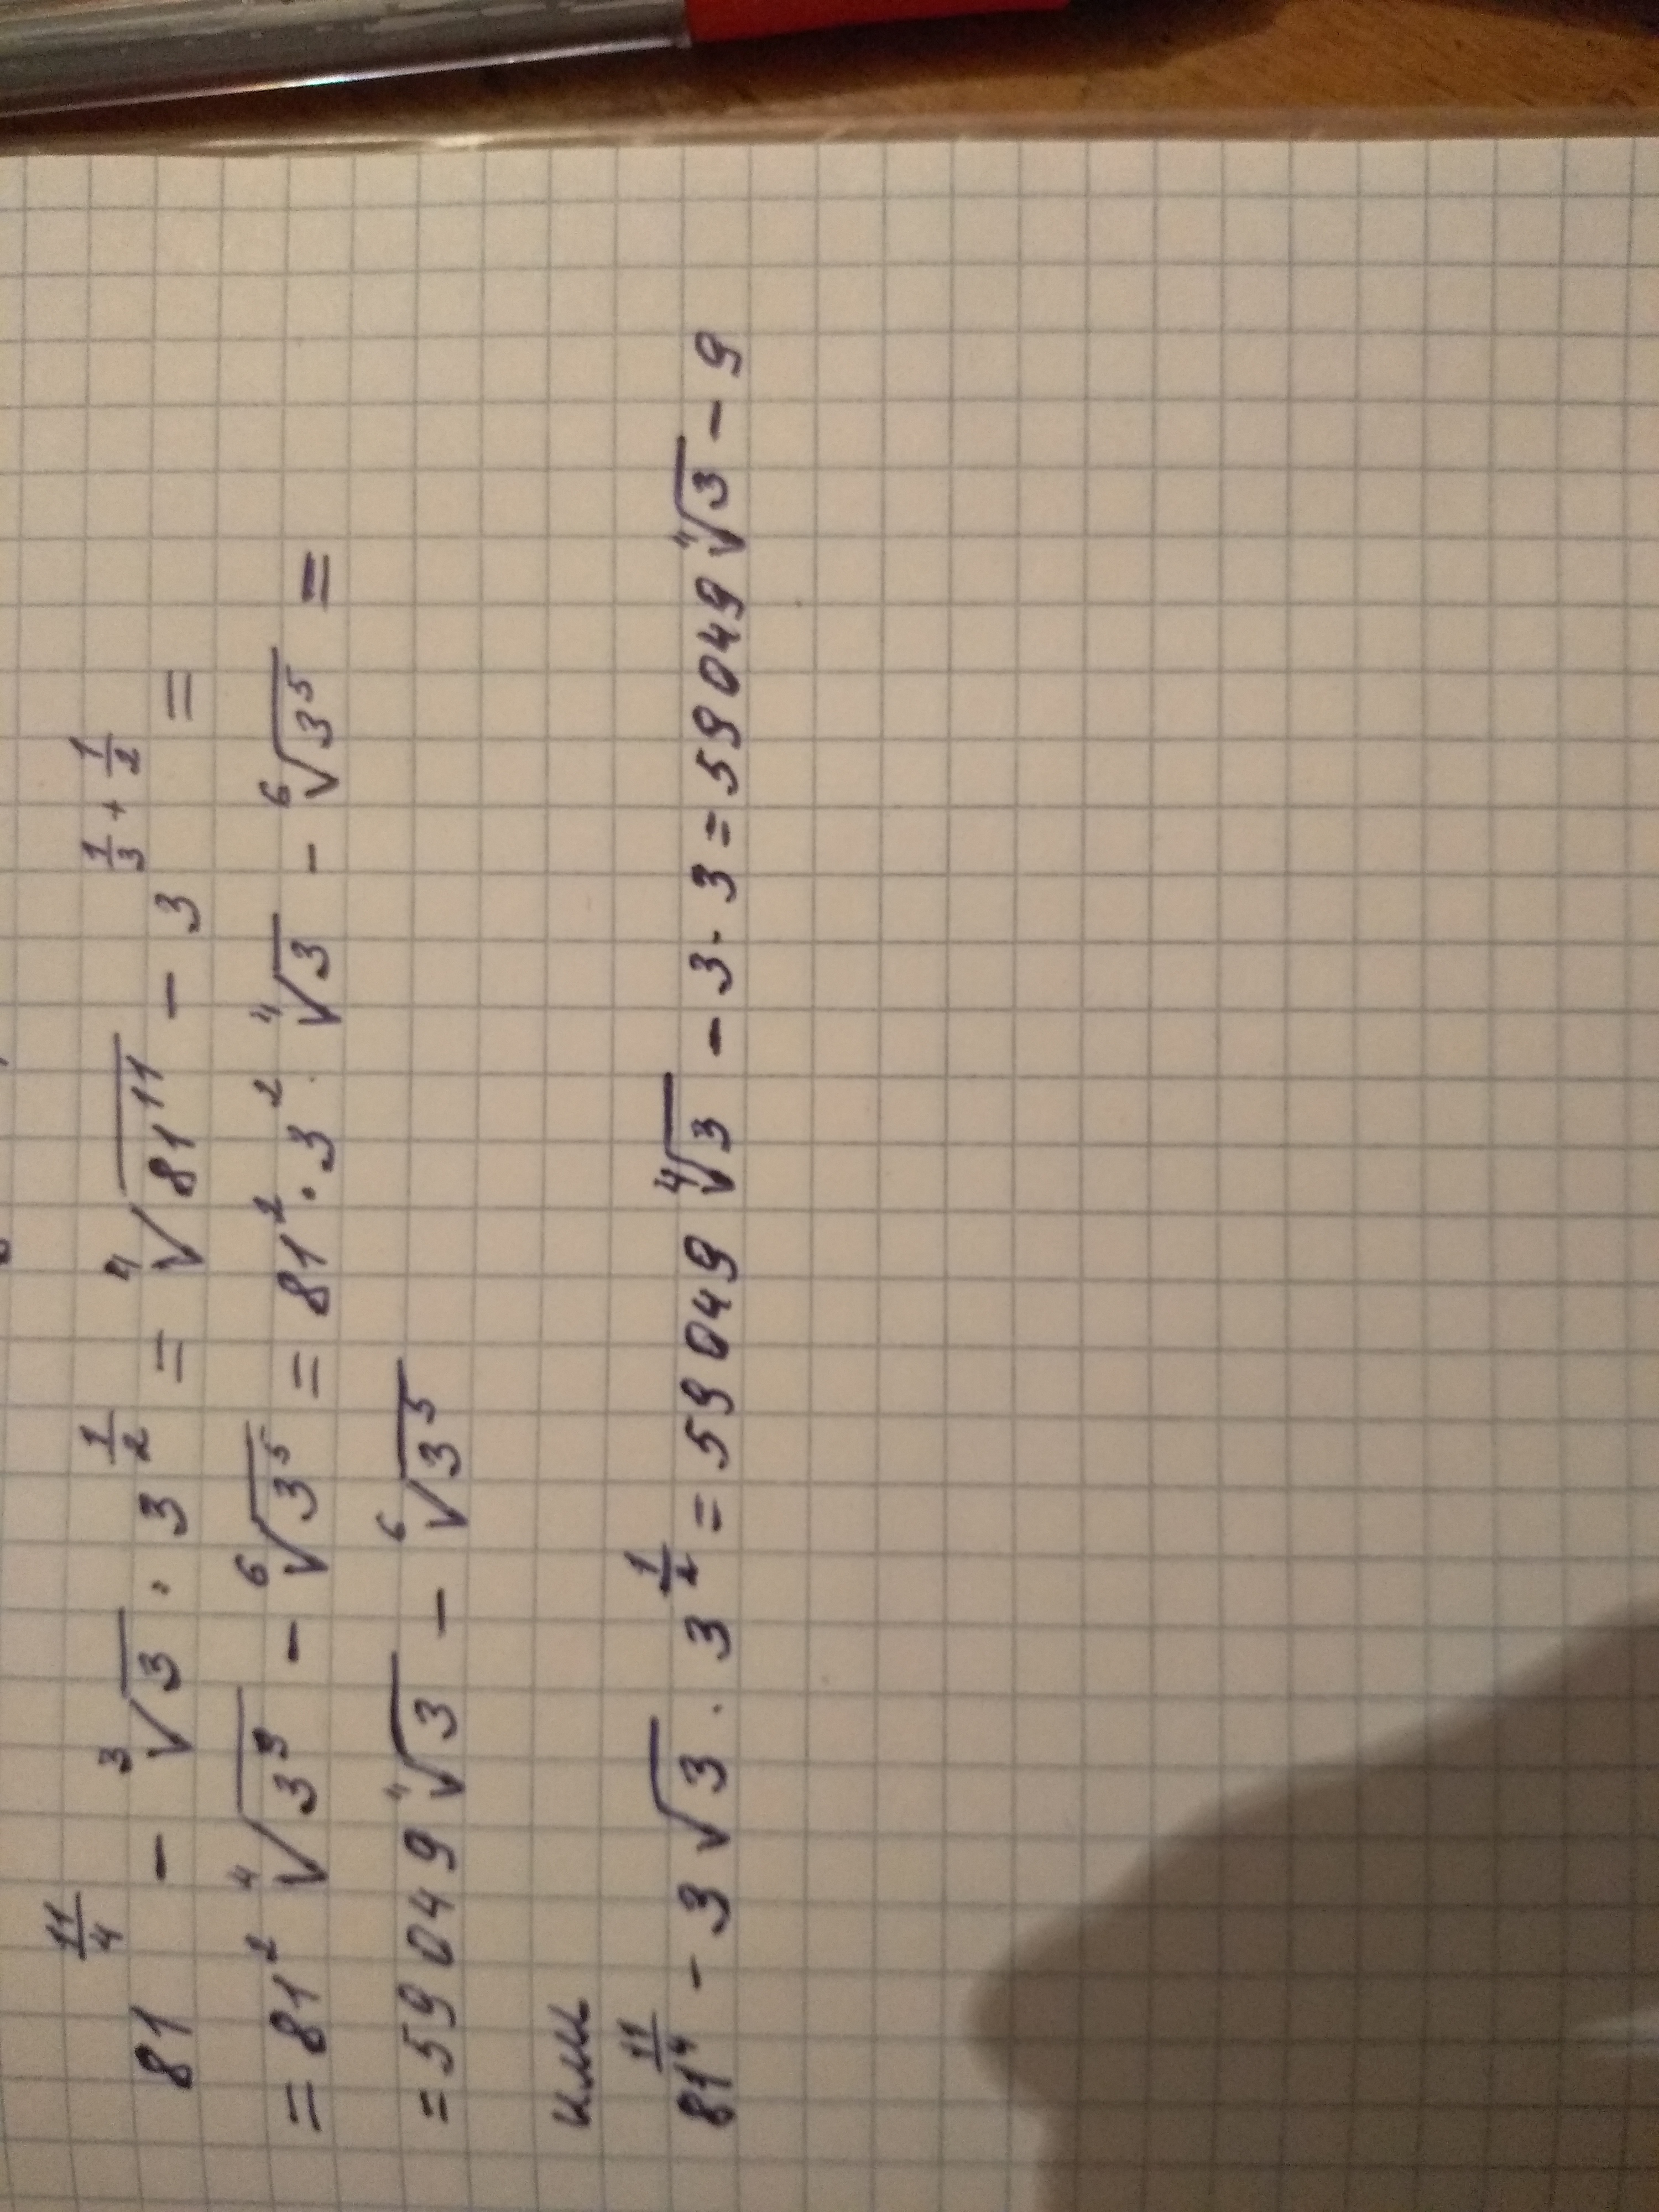 81^(11/4) - ∛3 · 3^(1/2) = ∜(81^11) - 3^(1/3 + 1/2) =
= 81² ∜(3⁹) - ⁶√(3⁵) = 81² · 3² ∜3 - ⁶√(3⁵) =
= 59049 ∜3 - ⁶√(3⁵)
или
81^(11/4) - 3√3 · 3^(1/2) = 59049 ∜3 - 3 · 3 = 59049 ∜3 - 9